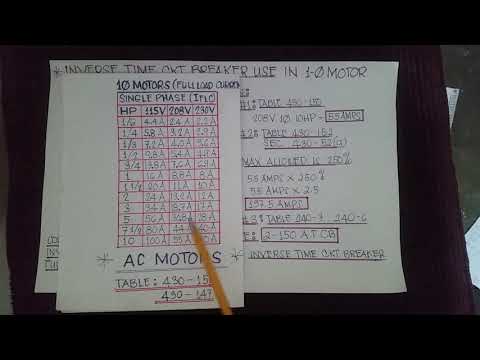 * INVERSE TIME CKT BREAKER USE IN 1-Ø MOTOR
1Ø MOTORS (FULL LOAD CURRENT
SINGLE PHASE (IFLC)
HP 115V 208V 230V
1/6 4.4 A 2.4 A 2.2 A
1/4 5.8 A 3.2 A 2.9 A
1/3 7.2 A 4.0 A 3.6 A
1/2 9.8 A 5.4 A 4.9 A
3/4 13.8 A 7.6 A 6.9 A
1 16 A 8.8 A 8 A
1 1/2 20 A 11 A 10 A
2 24 A 13.2 A 12 A
3 34 A 18.7 A 17 A
5 56 A 30.8 A 28 A
7 1/2 80 A 44 A 40 A
10 100 A 55 A 50 A
* AC MOTORS
TABLE: 430-
430-147
TABLE 430-
208V 1Ø 10HP = 55 AMPS
#2: TABLE 430-152
SEC. 430-52(a)
MAX ALLOWED IS 250%
55 AMPS X 250%
55 AMPS X 2.5
137.5 AMPS
#3: TABLE 240-3 240-6
: 2-150 A.T. CB
* INVERSE TIME CKT BREAKER